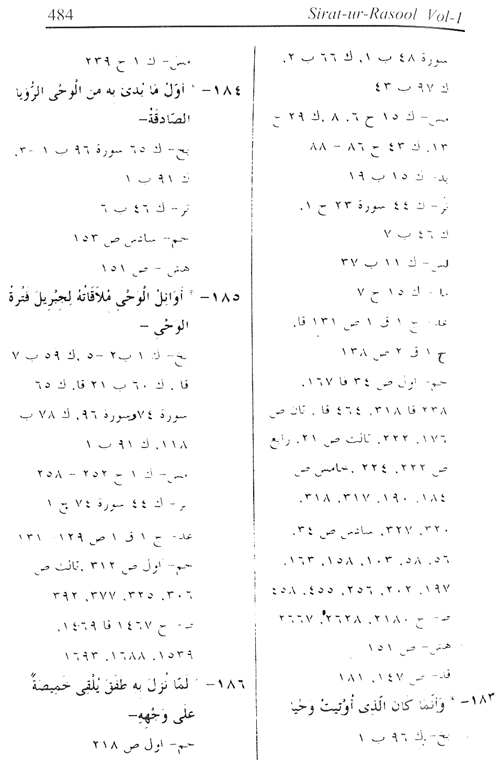 484
Sirat-ur-Rasool Vol-1
سورة ٤٨ ب ١. ك ٦٦ ب ٢.
ك ٩٧ ب ٤٣
مس- ك ١٥ ح ٦. ٨ .ك ٢٩ ح
١٣. ك ٤٣ ح ٨٦ - ٨٨
بد- ك ١٥ ب ١٩
تر- ك ٤٤ سورة ٢٣ ح ١.
ك ٤٦ ب ٧
نس- ك ١١ ب ٣٧
ما- ك ١٥ ح ٧
عد- ج ١ ق ١ ص ١٣١ قا.
ج ١ ق ٢ ص ١٣٨
حم- اول ص ٣٤ قا ١٦٧.
٢٣٨ قا ٣١٨. ٤٦٤ قا . ثان ص
١٧٦. ٢٢٢. ثالث ص ٢١. رابع
ص ٢٢٢. ٢٢٤ .خامس ص
١٨٤. ١٩٠. ٣١٧. ٣١٨.
٣٢٠. ٣٢٧. سادس ص ٣٤.
٥٦. ٥٨. ١٠٣. ١٥٨. ١٦٣.
١٩٧. ٢٠٢. ٢٥٦. ٤٥٥. ٤٥٨
ط- ح ٢١٨٠. ٢٦٢٨. ٢٦٦٧
هش- ص ١٥١
قد- ص ١٤٧. ١٨١
١٨٣- * وَأنّمَا كَان الّذِى أُوْتيتُ وحْيا
بخ- ك ٩٦ ب ١
مس- ك ١ ح ٢٣٩
١٨٤- * أوّلُ مَا بُدئ به من الْوحْى الرُّؤيا
الصّادقةُ-
بخ- ك ٦٥ سورة ٩٦ ب ١ -٣.
ك ٩١ ب ١
تر- ك ٤٦ ب ٦
حم- سادس ص ١٥٣
هش - ص ١٥١
١٨٥- * أوَائلُ الْوحْي مُلاَقاتُهُ لِجبْريلَ فتْرةُ
الوَحْي -
بخ- ك ١ ب٢ -٥ .ك ٥٩ ب ٧
قا . ك ٦٠ ب ٢١ قا. ك ٦٥
سورة ٧٤ وسورة ٩٦. ك ٧٨ ب
١١٨. ك ٩١ ب ١
مس- ك ١ ح ٢٥٢ - ٢٥٨
تر- ك ٤٤ سورة ٧٤ ح ١
عد- ج ١ ق ١ ص ١٢٩- ١٣١
حم- اول ص ٣١٢ .ثالث ص
٣٠٦. ٣٢٥. ٣٧٧. ٣٩٢
ط- ح ١٤٦٧ قا ١٤٦٩.
١٥٣٩. ١٦٨٨. ١٦٩٣
١٨٦- * لَمّا نُزلَ به طفقَ يُلْقى خَميصةً
علَى وَجْهِهِ-
حم- اول ص ٢١٨